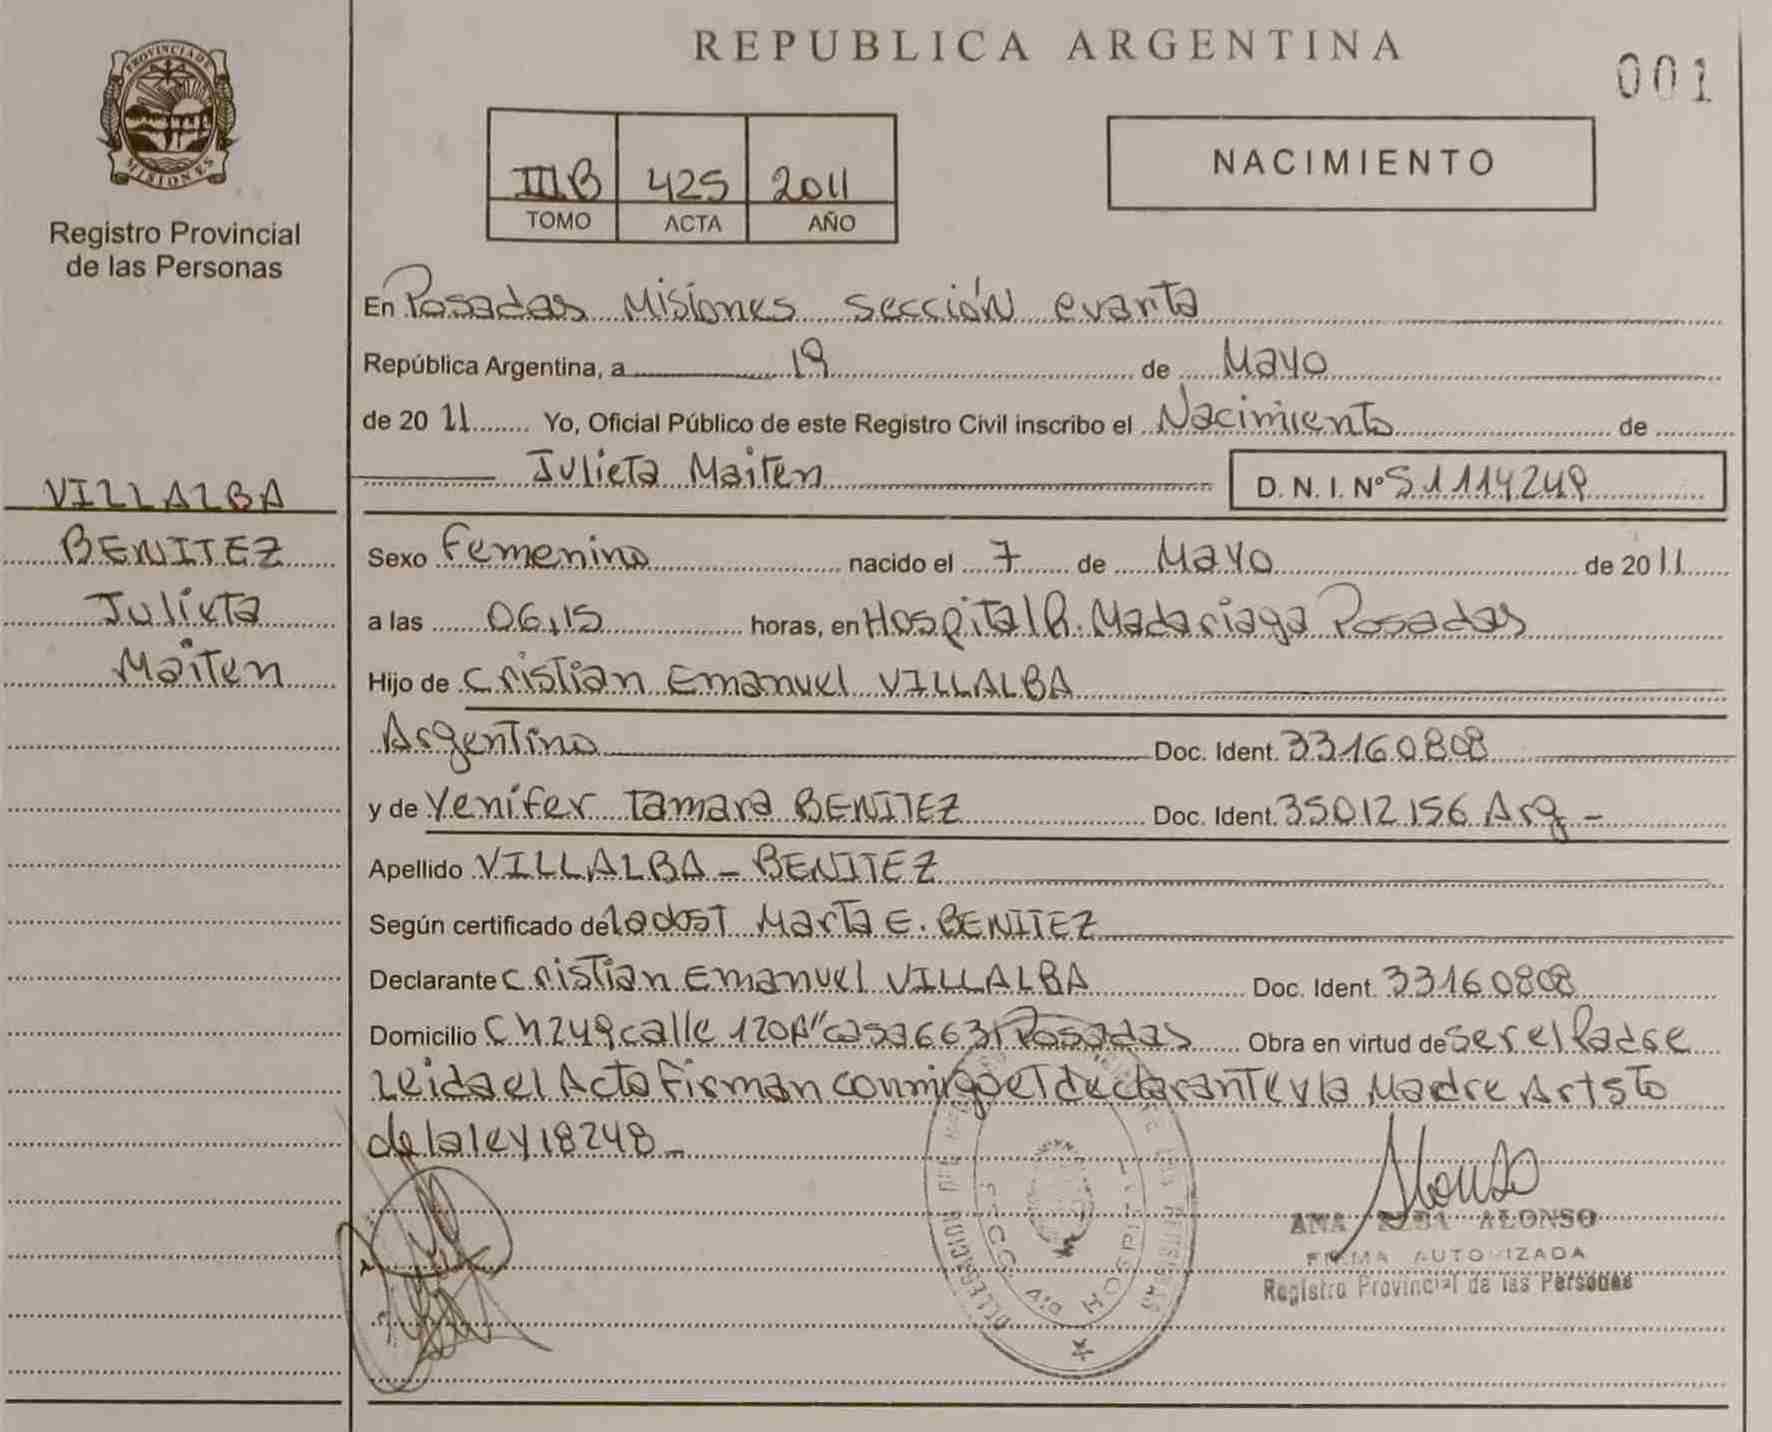 PROVINCIA DE
MISIONES
Registro Provincial
de las Personas
VILLALBA
BENITEZ
Julieta
Maiten
REPUBLICA ARGENTINA
001
IIIB 425 2011
TOMO ACTA AÑO
NACIMIENTO
En Posadas Misiones sección cuarta
República Argentina, a 19 de Mayo
de 2011 Yo, Oficial Público de este Registro Civil inscribo el Nacimiento de
Julieta Maiten D. N. I. Nº 51114249
Sexo Femenino nacido el 7 de Mayo de 2011
a las 06,15 horas, en Hospital R. Madariaga Posadas
Hijo de Cristian Emanuel VILLALBA
Argentino Doc. Ident. 33160808
y de Yenifer Tamara BENITEZ Doc. Ident. 35012156 Arg -
Apellido VILLALBA - BENITEZ
Según certificado de la obst Marta E. BENITEZ
Declarante Cristian Emanuel VILLALBA Doc. Ident. 33160808
Domicilio Ch 249 calle 120A" casa 6631 Posadas Obra en virtud de ser el Padre
Leida el Acta Firman conmigo el declarante y la Madre Art 5to
de la ley 18248 -
Alonso
ANA ALONSO
FIRMA AUTORIZADA
Registro Provincial de las Personas